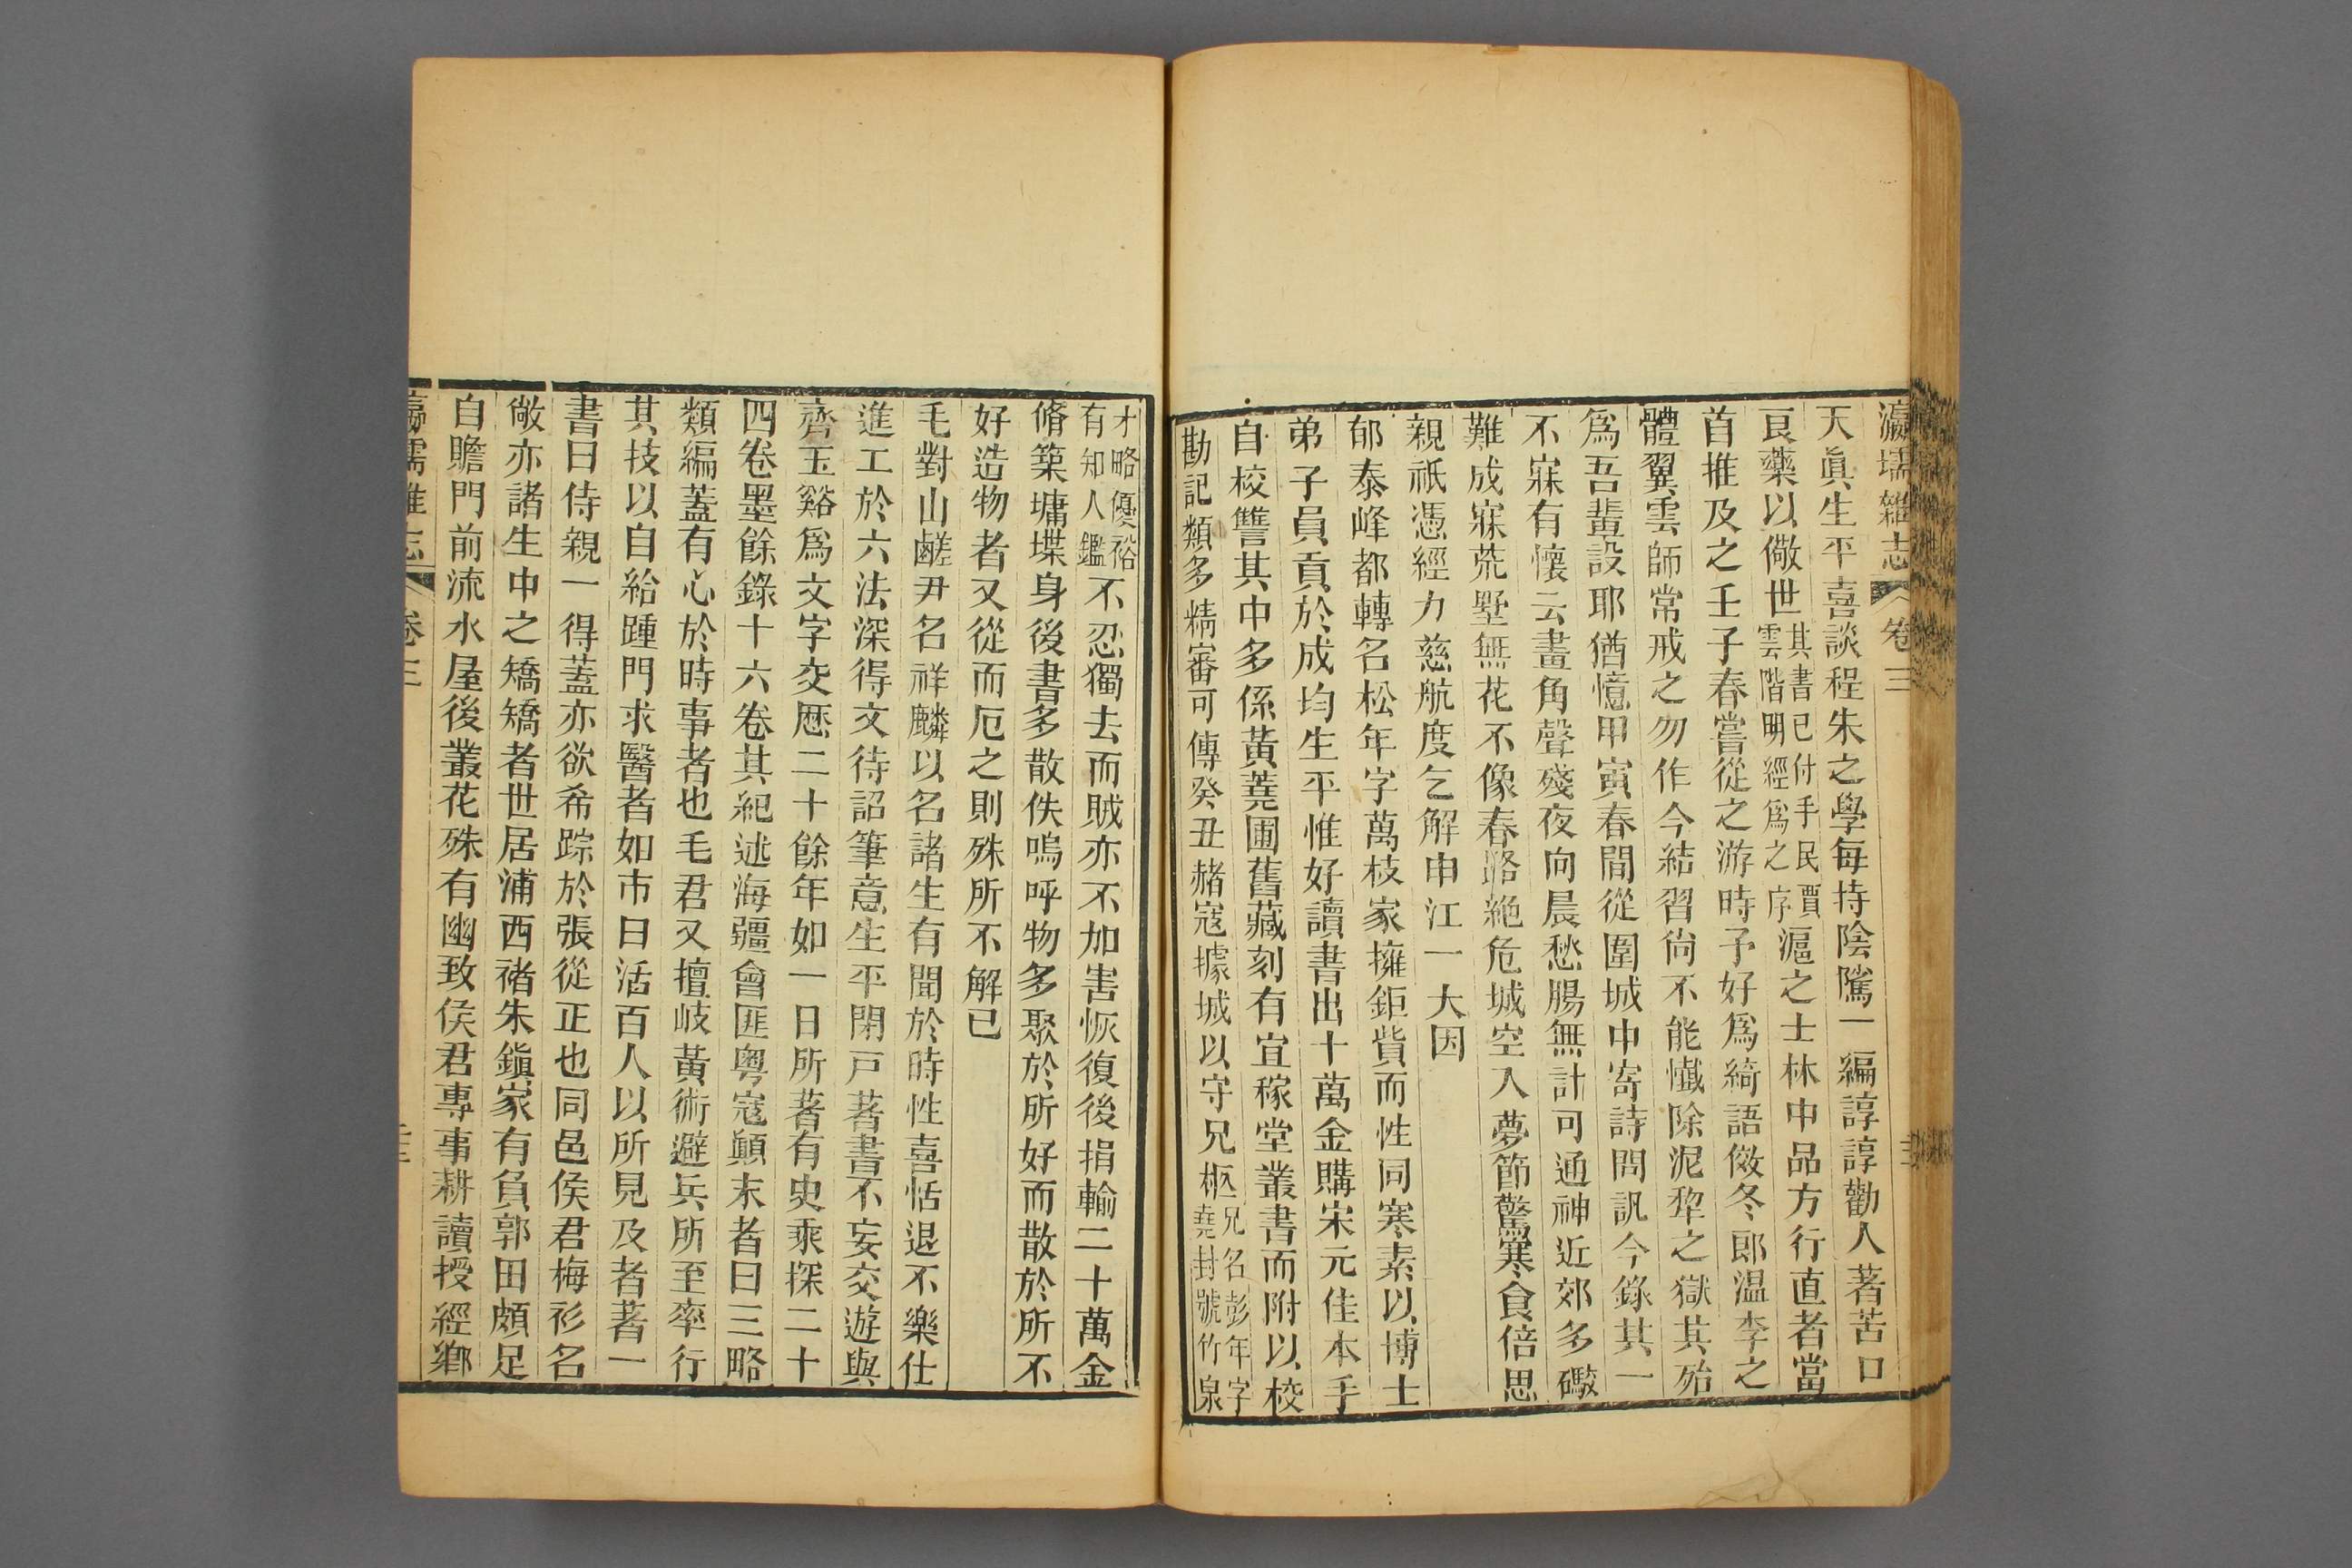 瀛壖雜志 卷三
天眞生平喜談程朱之學每持陰隲一編諄諄勸人著苦口
良藥以儆世其書已付手民賈雲階明經爲之序滬之士林中品方行直者當
首推及之壬子春嘗從之游時予好爲綺語傚冬郎温李之
體翼雲師常戒之勿作今結習尙不能懺除泥犂之獄其殆
爲吾輩設耶猶憶甲寅春間從圍城中寄詩問訊今錄其一
不寐有懷云畫角聲殘夜向晨愁腸無計可通神近郊多礮
難成寐荒墅無花不像春路絶危城空入夢節驚寒食倍思
親祇憑經力慈航度乞解申江一大因
郁泰峰都轉名松年字萬枝家擁鉅貲而性同寒素以博士
弟子員貢於成均生平惟好讀書出十萬金購宋元佳本手
自校讐其中多係黃蕘圃舊藏刻有宜稼堂叢書而附以校
勘記類多精審可傳癸丑赭寇據城以守兄柩兄名彭年字堯封號竹泉
才略優裕有知人鑑不忍獨去而賊亦不加害恢復後捐輸二十萬金
脩築墉堞身後書多散佚嗚呼物多聚於所好而散於所不
好造物者又從而厄之則殊所不解已
毛對山鹺尹名祥麟以名諸生有聞於時性喜恬退不樂仕
進工於六法深得文待詔筆意生平閉戸著書不妄交遊與
齊玉谿爲文字交歷二十餘年如一日所著有史乘探二十
四卷墨餘錄十六卷其紀述海疆會匪粤寇顚末者曰三略
類編蓋有心於時事者也毛君又擅岐黃術避兵所至率行
其技以自給踵門求醫者如市日活百人以所見及者著一
書曰侍親一得蓋亦欲希踪於張從正也同邑侯君梅衫名
敞亦諸生中之矯矯者世居浦西禇朱鎭家有負郭田頗足
自贍門前流水屋後叢花殊有幽致侯君專事耕讀授經鄕
瀛壖雜志 卷三